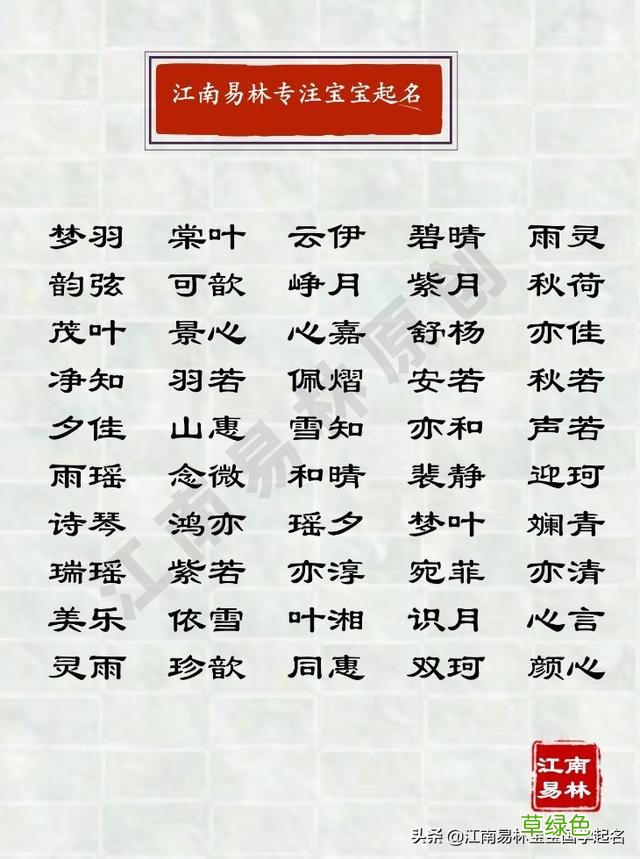 江南易林专注宝宝起名
梦羽 棠叶 云伊 碧晴 雨灵
韵弦 可歆 峥月 紫月 秋荷
茂叶 景心 心嘉 舒杨 亦佳
净知 羽若 佩熠 安若 秋若
夕佳 山惠 雪知 亦和 声若
雨瑶 念微 和晴 裴静 迎珂
诗琴 鸿亦 瑶夕 梦叶 娴青
瑞瑶 紫若 亦淳 宛菲 亦清
美乐 依雪 叶湘 识月 心言
灵雨 珍歆 同惠 双珂 颜心
江南易林原创
江南
易林
草绿色
头条 @江南易林宝宝国学起名